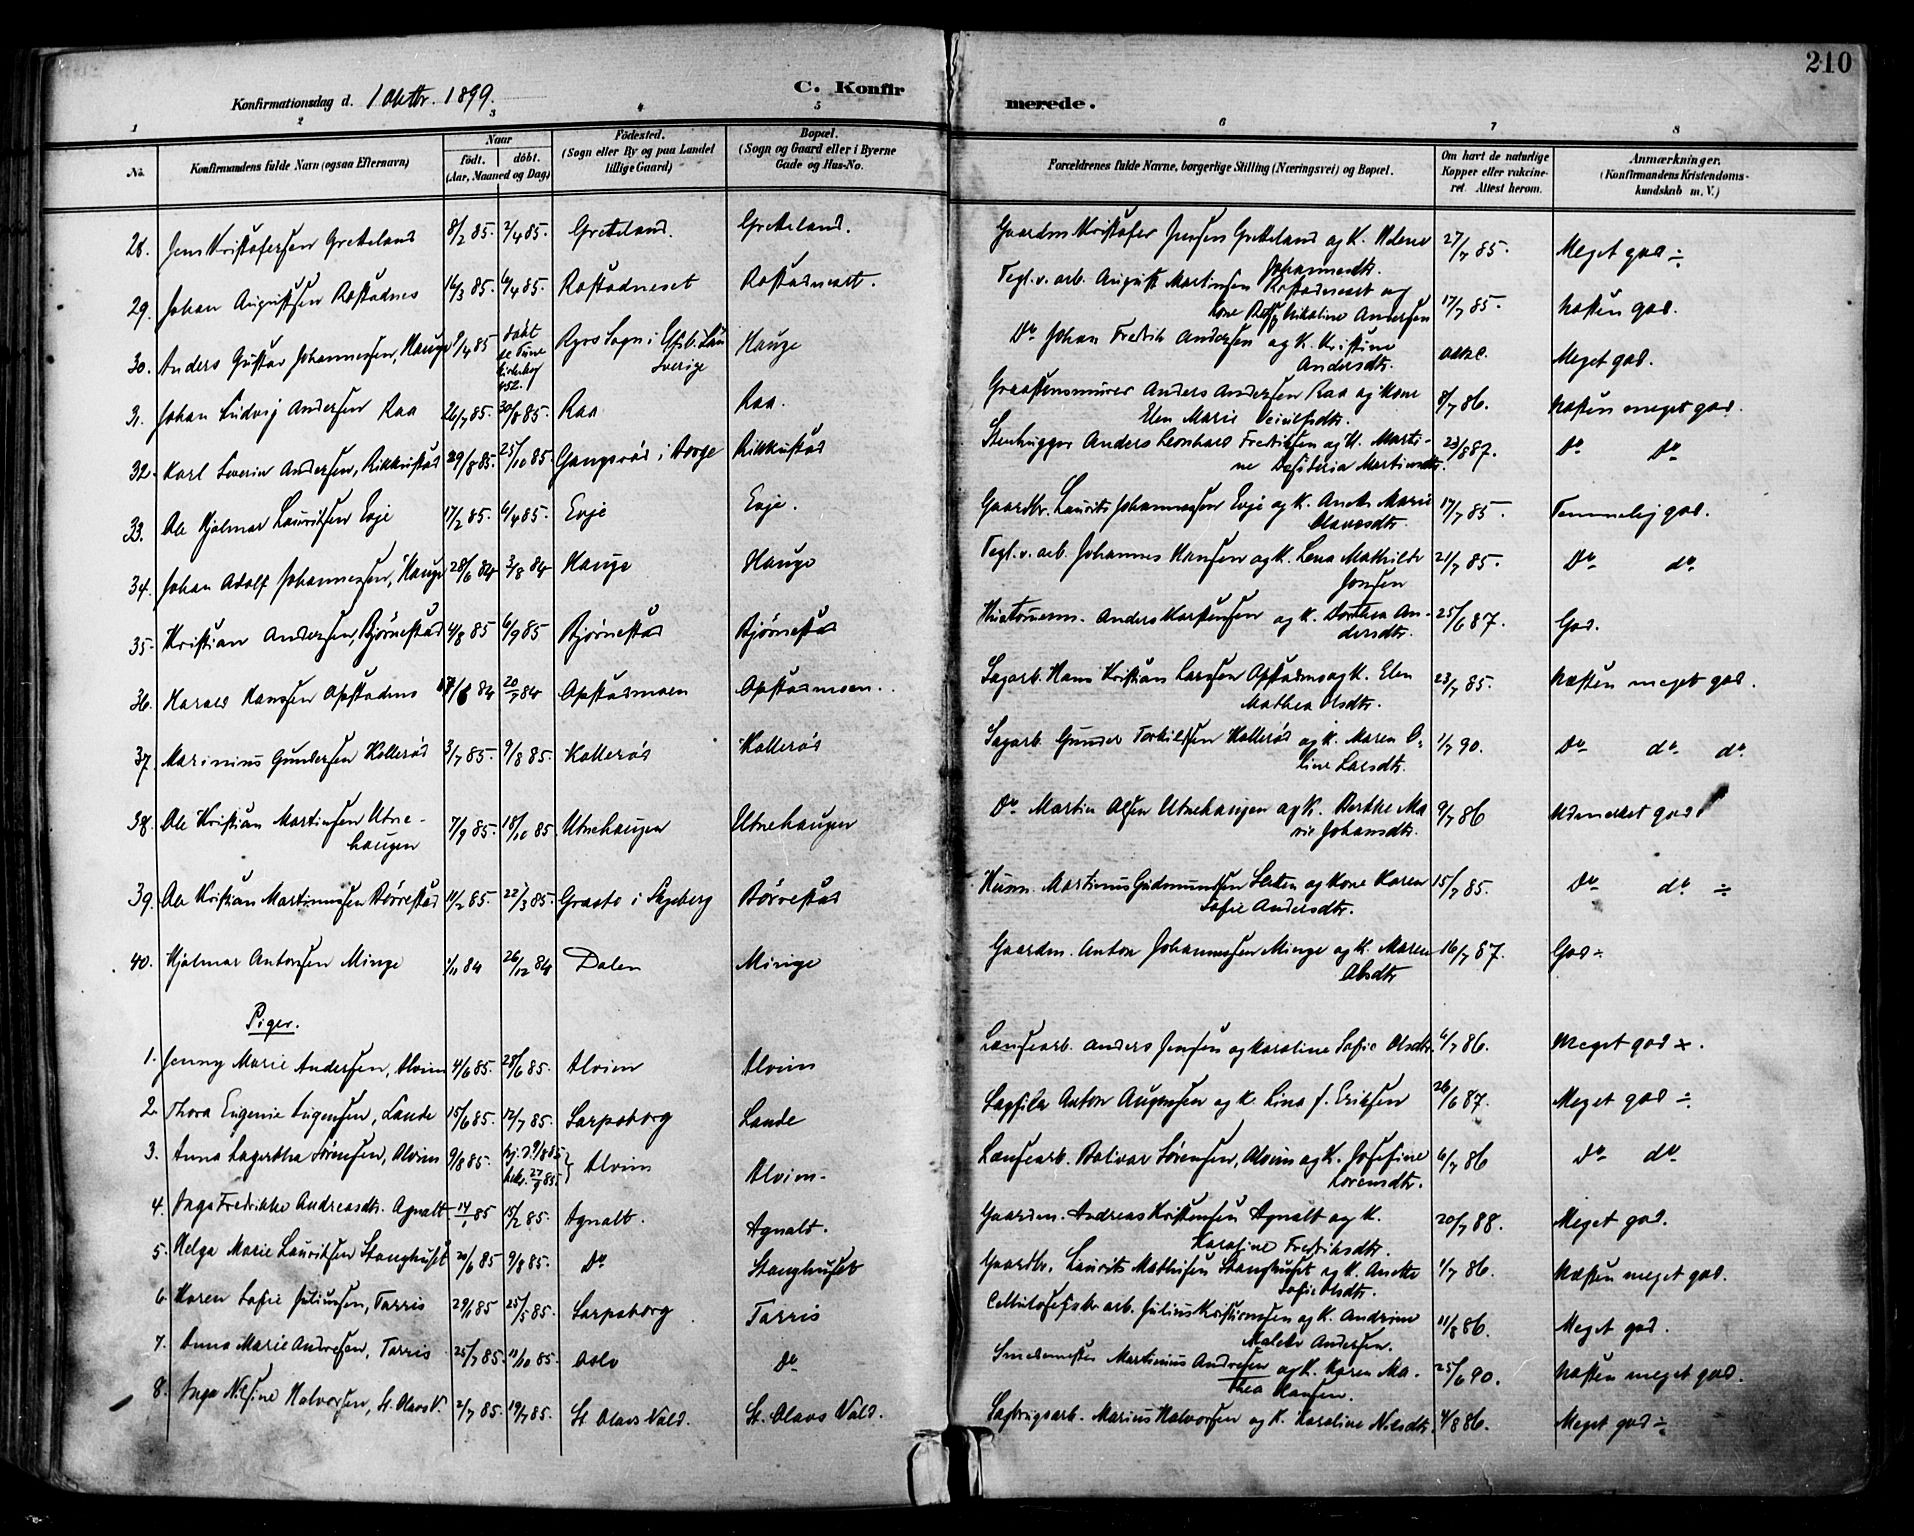 210
Konfirmationsdag d. 1 Oktbr. 1899.
C. Konfirmerede.
1 2 3 4 5 6 7 8
No.
Konfirmandens fulde Navn (ogsaa Efternavn)
Naar
födt. döbt.
(Aar, Maaned og Dag)
Födested.
(Sogn eller By og paa Landet
tillige Gaard)
Bopæl.
(Sogn og Gaard eller i Byerne
Gade og Hus-No.
Forældrenes fulde Navne, borgerlige Stilling (Næringsvei) og Bopæl.
Om havt de naturlige
Kopper eller vakcine-
ret. Attest herom.
Anmærkninger.
(Konfirmandens Kristendoms-
kundskab m. V.)
28. Jens Kristofersen Gretteland 8/2 85. 2/4 85. Gretteland. Gretteland. Gaardm Kristofer Jensen Gretteland og K. Johannesdtr. 27/7 85. Meget god ÷
29. Johan Augustsen Rostadnes 16/3 85. 6/4 85. Rostadneset Rostadneset. Tegl.v. arb. August Martinsen Rostadneset og
Kone Nikoline Andersen 17/7 85. Næsten god.
30. Anders Gustav Johannessen, Hauge /4 85 döbt
se Tune
Kirkebog
452. Ryrs Sogn i
Sverige Hauge Do Johan Fredrik Andersen og K. Kristine
Andersdtr. Meget god.
31. Johan Ludvig Andersen Raa 26/7 85. 30/8 85. Raa Raa. Graastensmurer Anders Andersen Raa og Kone
Elen Marie 8/7 86. Næsten meget god.
32. Karl Severin Andersen, Rikkustad 29/8 85. 25/10 85. Gangsrød i Borge Rikkustad Stenhugger Anders Leonhard Fredriksen og K. Marti-
ne Desideria Martinsdtr. 23/8 87. Do Do
33. Ole Hjalmar Lauritsen Evje 17/2 85. 6/4 85. Evje Evje. Gaardbr. Laurits Johannessen Evje og K. Anete Marie
Olavesdtr. 17/7 85. Temmelig god.
34. Johan Adolf Johannessen, Hauge 28/6 84 3/8 84 Hauge Hauge Tegl.v. arb. Johannes Hansen og K. Lena Mathilde
Jonsen 21/7 85. Do do
35. Kristian Andersen, Bjørnestad 4/8 85 6/9 85 Bjørnestad Bjørnestad Anders Karstensen og K. Dorthea An-
dersdtr. 25/6 87. God.
36. Harald Hansen Opstadmo /6 84 20/7 84 Opstadmoen Opstadmoen. Sagarb. Hans Kristian Larssen Opstadmo og K. Elen
Mathea Olsdtr. 23/7 85. Næsten meget god.
37. Marinius Gundersen Kollerød 3/7 85. 9/8 85. Kollerød Kollerød Sagarb. Gunder Torkildsen Kollerød og K. Maren O-
line Larsdtr. 1/7 90. Do do do
38. Ole Kristian Martinsen Utne-
haugen 7/9 85. 18/10 85. Utnehaugen Utnehaugen Do Martin Olsen Utnehaugen og K. Berthe Ma
rie Johansdtr. 9/7 86 Udmerket god
39. Ole Kristian Martinussen Børrestad 11/2 85. 22/3 85. Graato i Skjeberg Børrestad Husm. Martinus Gudmundsen Sletten og Kone Karen
Sofie Andersdtr. 15/7 85. Do do ÷
40. Hjalmar Antonsen Minge 1/11 84 26/12 84 Dalen Minge Gaardm. Anton Johannessen Minge og K. Maren
Olsdtr 16/7 87. God ÷
Piger.
1. Jenny Marie Andersen, Alvim 4/6 85. 28/6 85. Alvim Alvim Lændsearb. Anders Jensen og Karoline Sofie Olsdtr. 6/7 86. Meget god ×.
2. Thora Eugenie Augensen, Lande 15/6 85. 12/7 85. Sarpsborg Lande Sagfiler Anton Augensen og K. Lina f. Eriksen 26/6 87. Meget god ÷
3. Anna Lagertha Sørensen, Alvim 9/8 85. hj.d. 9/8 85
bekr. 27/9 85. Alvim Alvim. Lændsearb. Bolivar Sørensen, Alvim og K. Josefine
Lorensdtr. 6/7 86 Do do
4. Inga Fredrikke Andreasdtr. Agnalt. 14/1 85 15/2 85. Agnalt. Agnalt. Gaardm. Andreas Kristensen Agnalt og K.
Karoline Fredriksdtr. 20/7 88. Meget god.
5. Helga Marie Lauritsen Stanghuset 20/6 85 9/8 85. Do Stanghuset Gaardbr. Laurits Mathisen Stanghuset og K. Anette
Sofie Olsdtr. 1/7 86. Næsten meget god.
6. Karen Sofie Juliussen, Torris 29/1 85 25/5 85. Sarpsborg Torris Cellulosefabr arb. Julius Kristiansen og K. Andrine
Malete Andersen. 11/8 86. Meget god.
7. Anna Marie Andresen, Torris 25/7 85. 11/10 85. Oslo Do Smedemester Martinius Andresen og K. Karen Ma-
thea Hansen. 25/6 90. Næsten meget god.
8. Inga Nilsine Halvorsen, St. Olavs V. 2/7 85. 19/7 85. St. Olavs Vold. St. Olavs Vold. Marius Halvorsen og K. Karoline Nilsdtr. 4/8 86. Meget god ÷